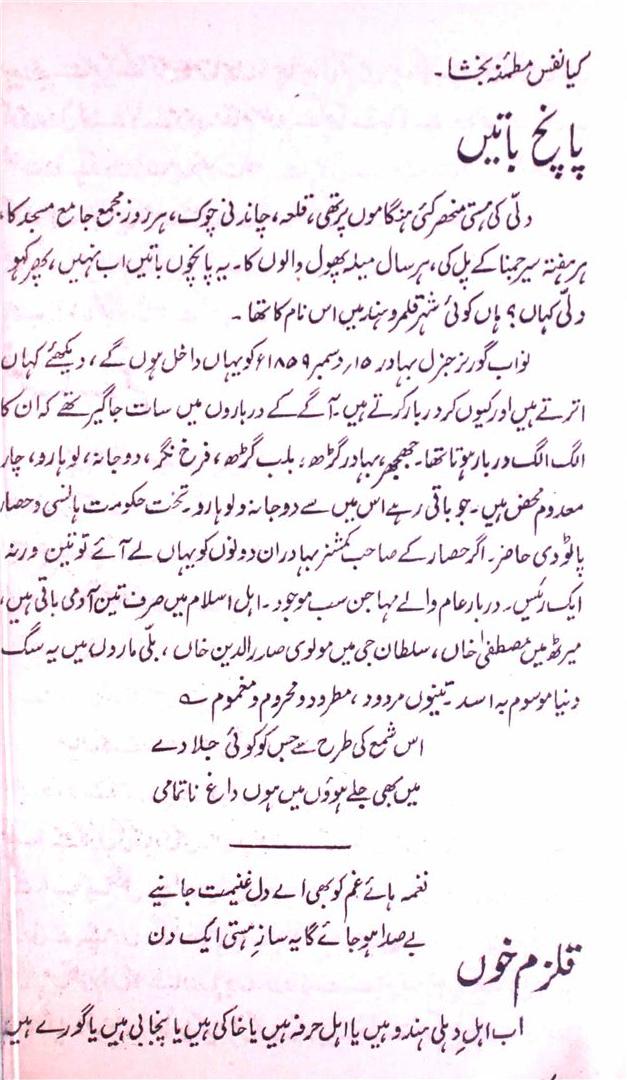 کیا نفس مطمئنہ بخشا۔
پانچ باتیں
دلّی کی ہستی منحصر کئی ہنگاموں پر تھی، قلعہ، چاندنی چوک، ہر روز مجمع جامع مسجد کا،
ہر ہفتہ سیر جمنا کے پل کی، ہر سال میلہ پھول والوں کا۔ یہ پانچوں باتیں اب نہیں، پھر کہو
دلّی کہاں؟ ہاں کوئی شہر قلمرو ہند میں اس نام کا تھا۔
نواب گورنر جنرل بہادر ۱۵ر دسمبر ۱۸۵۹ء کو یہاں داخل ہوں گے، دیکھئے کہاں
اترتے ہیں اور کیوں کر دربار کرتے ہیں۔ آگے کے درباروں میں سات جاگیر تھے کہ ان کا
الگ الگ دربار ہوتا تھا۔ جھجھر، بہادر گڑھ، بلب گڑھ، فرخ نگر، دوجانہ، لوہارو، چار
معدوم محض ہیں۔ جو باقی رہے اس میں سے دوجانہ و لوہارو۔ تحت حکومت ہانسی و حصار
پاٹودی حاضر۔ اگر حصار کے صاحب کمشنر بہادر ان دونوں کو یہاں لے آئے تو تین ورنہ
ایک رئیس۔ دربار عام والے مہاجن سب موجود۔ اہل اسلام میں صرف تین آدمی باقی ہیں،
میرٹھ میں مصطفیٰ خاں، سلطان جی میں مولوی صدر الدین خاں، بلّی ماروں میں یہ سگ
دنیا موسوم بہ اسد۔ تینوں مردود، مطرود و محروم و مغموم ؎
اس شمع کی طرح سے جس کو کوئی جلا دے
میں بھی جلے ہوؤں میں ہوں داغ ناتمامی
نغمہ ہائے غم کو بھی اے دل غنیمت جانیے
بے صدا ہو جائے گا یہ ساز ہستی ایک دن
قلزم خوں
اب اہلِ دہلی ہندو ہیں یا اہل حرفہ ہیں یا خاکی ہیں یا پنجابی ہیں یا گورے ہیں